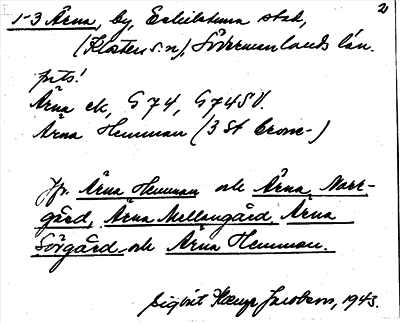 1-3 Ärna, by, Eskilstuna stad, 2
(Klosters sn), Södermanlands län.
prts!
Ärna ek, G 74, G 74 SV.
Ärna Hemman (3 St Crone-)
Jfr Ärna Hemman och Ärna Norr-
gård, Ärna Mellangård, Ärna
Sörgård och Ärna Hemman.
Sigbrit Jacobson, 1943.